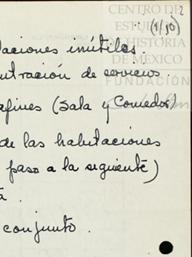 CENTRO DE
ESTUDIOS
DE HISTORIA
DE MEXICO
FUNDACIÓN
2
(1/50)
laciones inútiles:
ntración de servicios
afines (Sala y Comedor)
de las habitaciones
paso a la siguiente)
a.
conjunto.